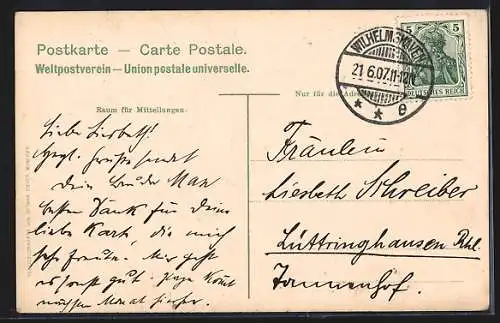 Postkarte — Carte Postale.
Weltpostverein — Union postale universelle.
Raum für Mitteilungen.
Nur für die Adresse
WILHELMSHAVEN
21.6.07.11-12N.
* * e
5 5
DEUTSCHES REICH
Liebe Liesbeth!
Herzl. Grüße sendet
Dein Bruder Max
besten Dank für Deine
liebe Karte, die mich
sehr freute. Mir geht
es sonst gut.
Monat hierher.
Fräulein
Liesbeth Schreiber
Lüttringhausen Rhl.
Tannenhof.